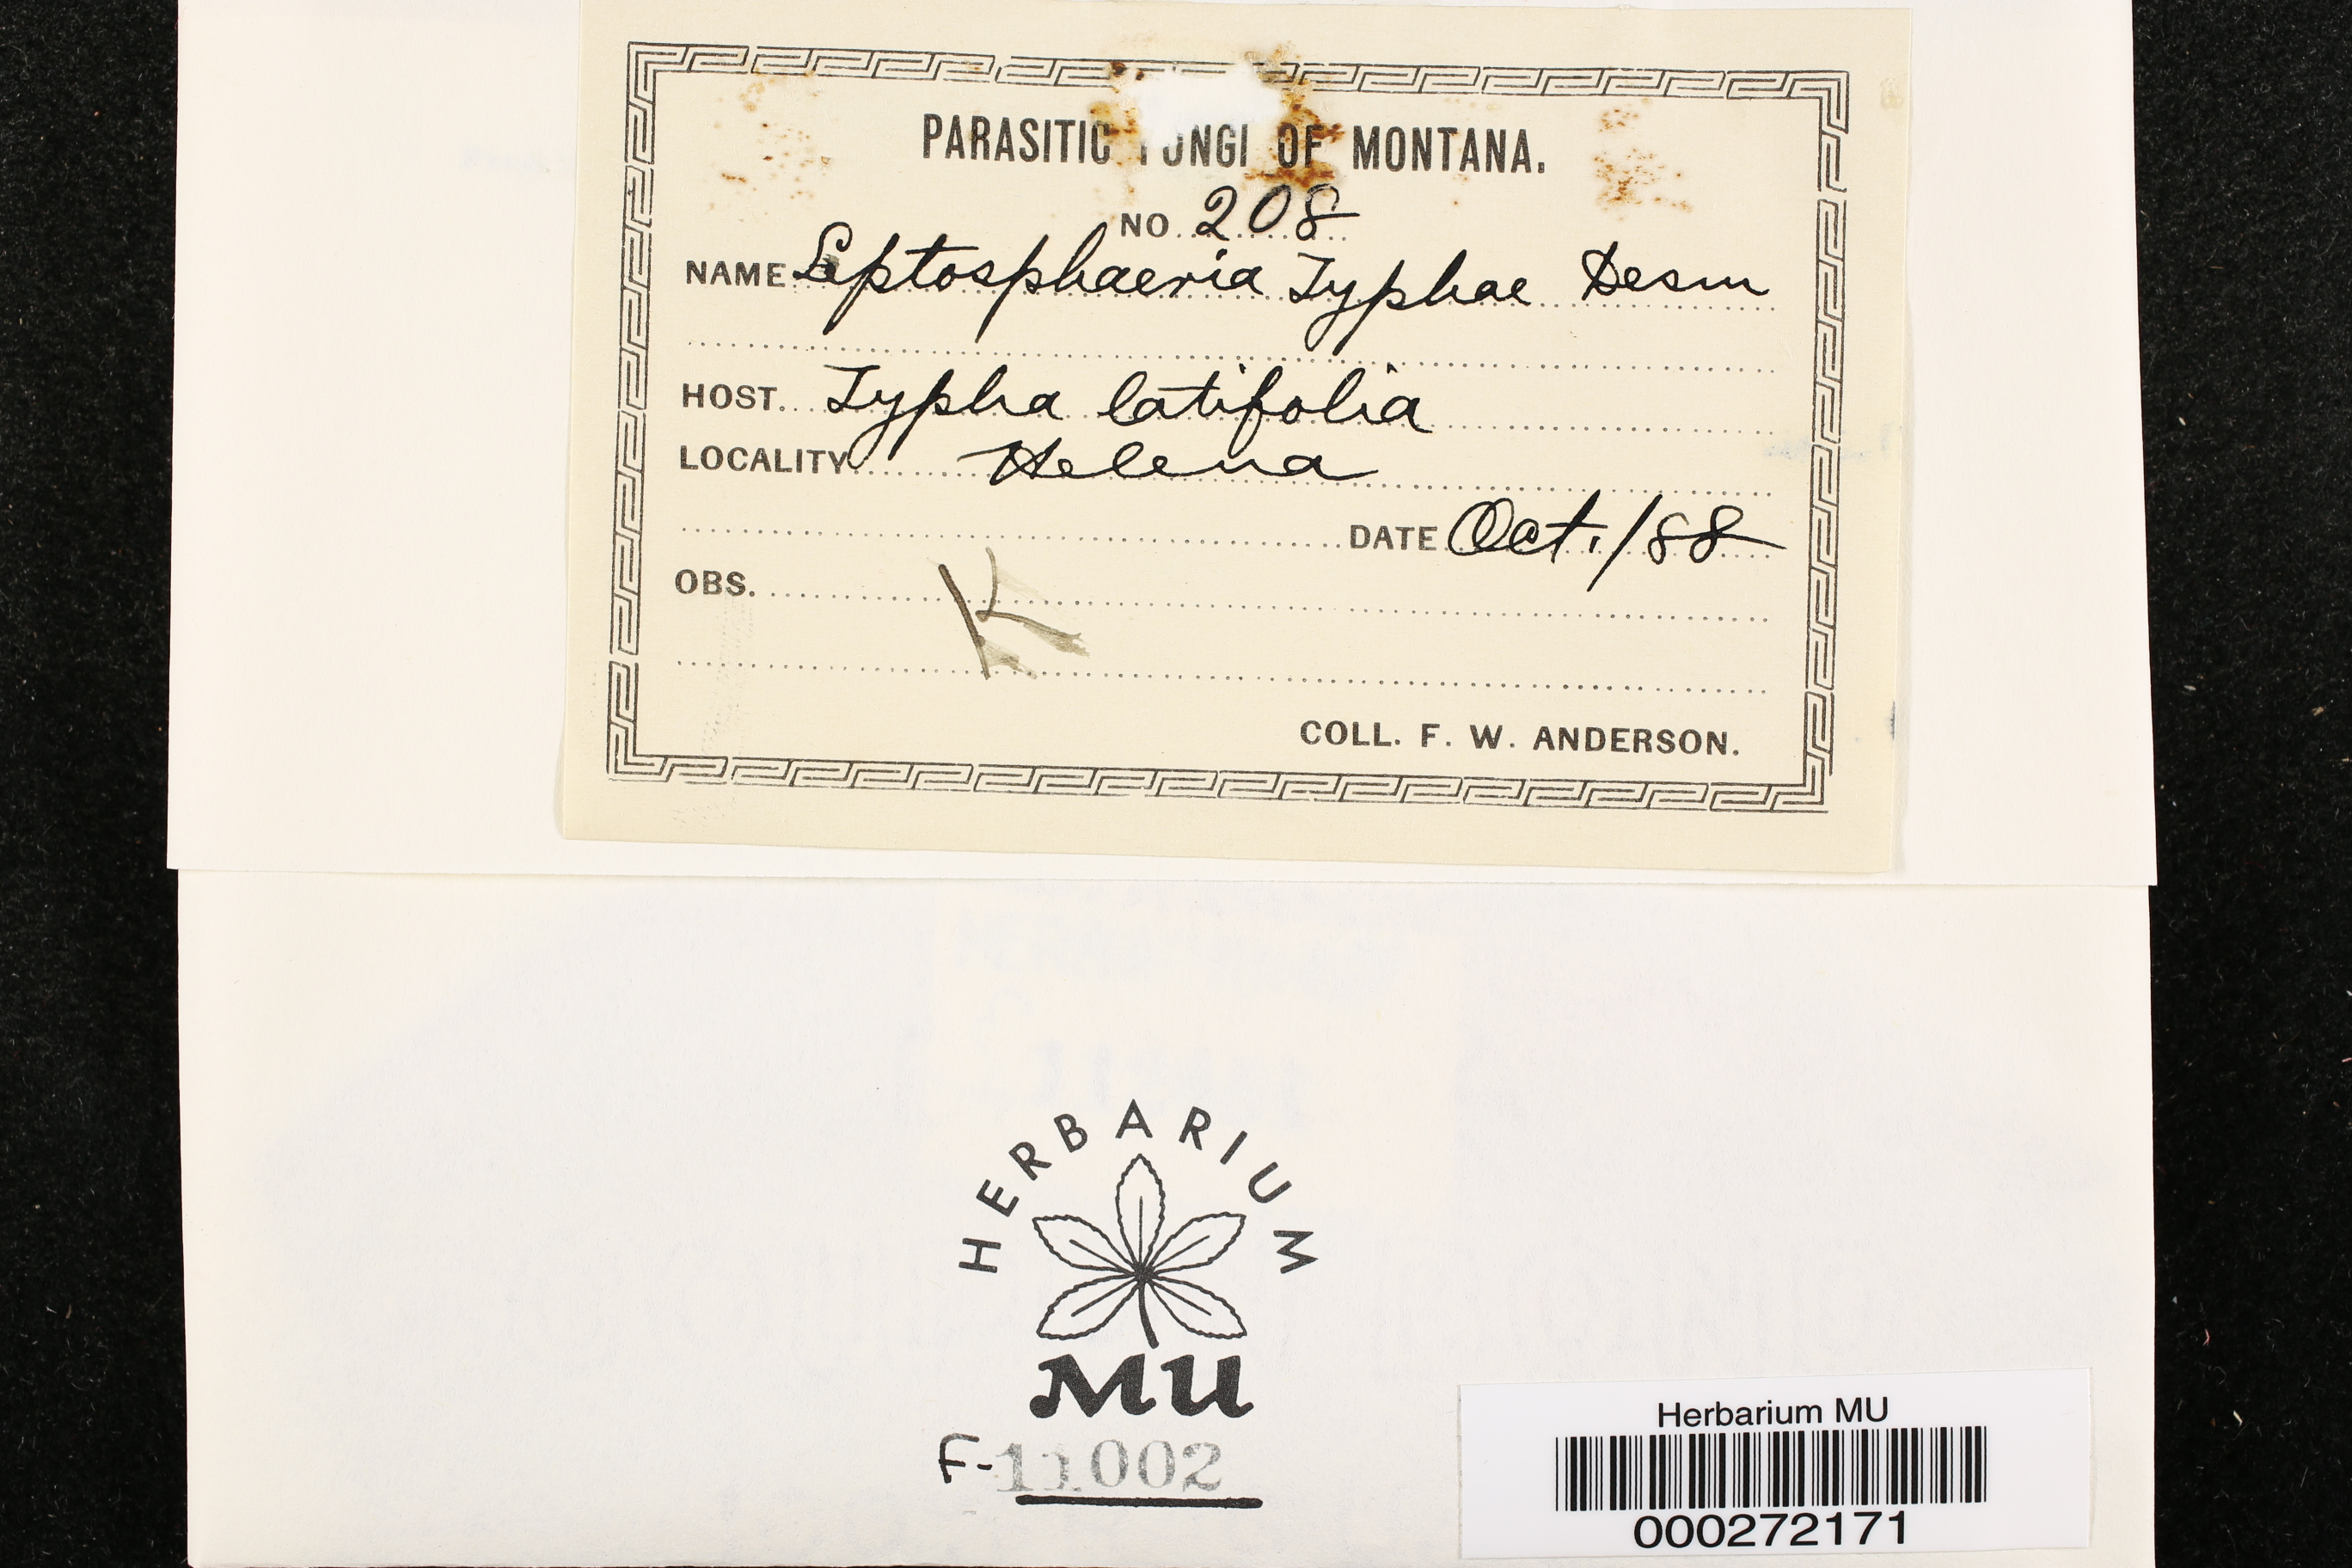 PARASITIC FUNGI OF MONTANA.
NO. 208
NAME Leptosphaeria Typhae Desm
HOST. Typha latifolia
LOCALITY. Helena
DATE Oct. /88
OBS.
K
COLL. F. W. ANDERSON.
HERBARIUM
MU
F-11002
Herbarium MU
000272171